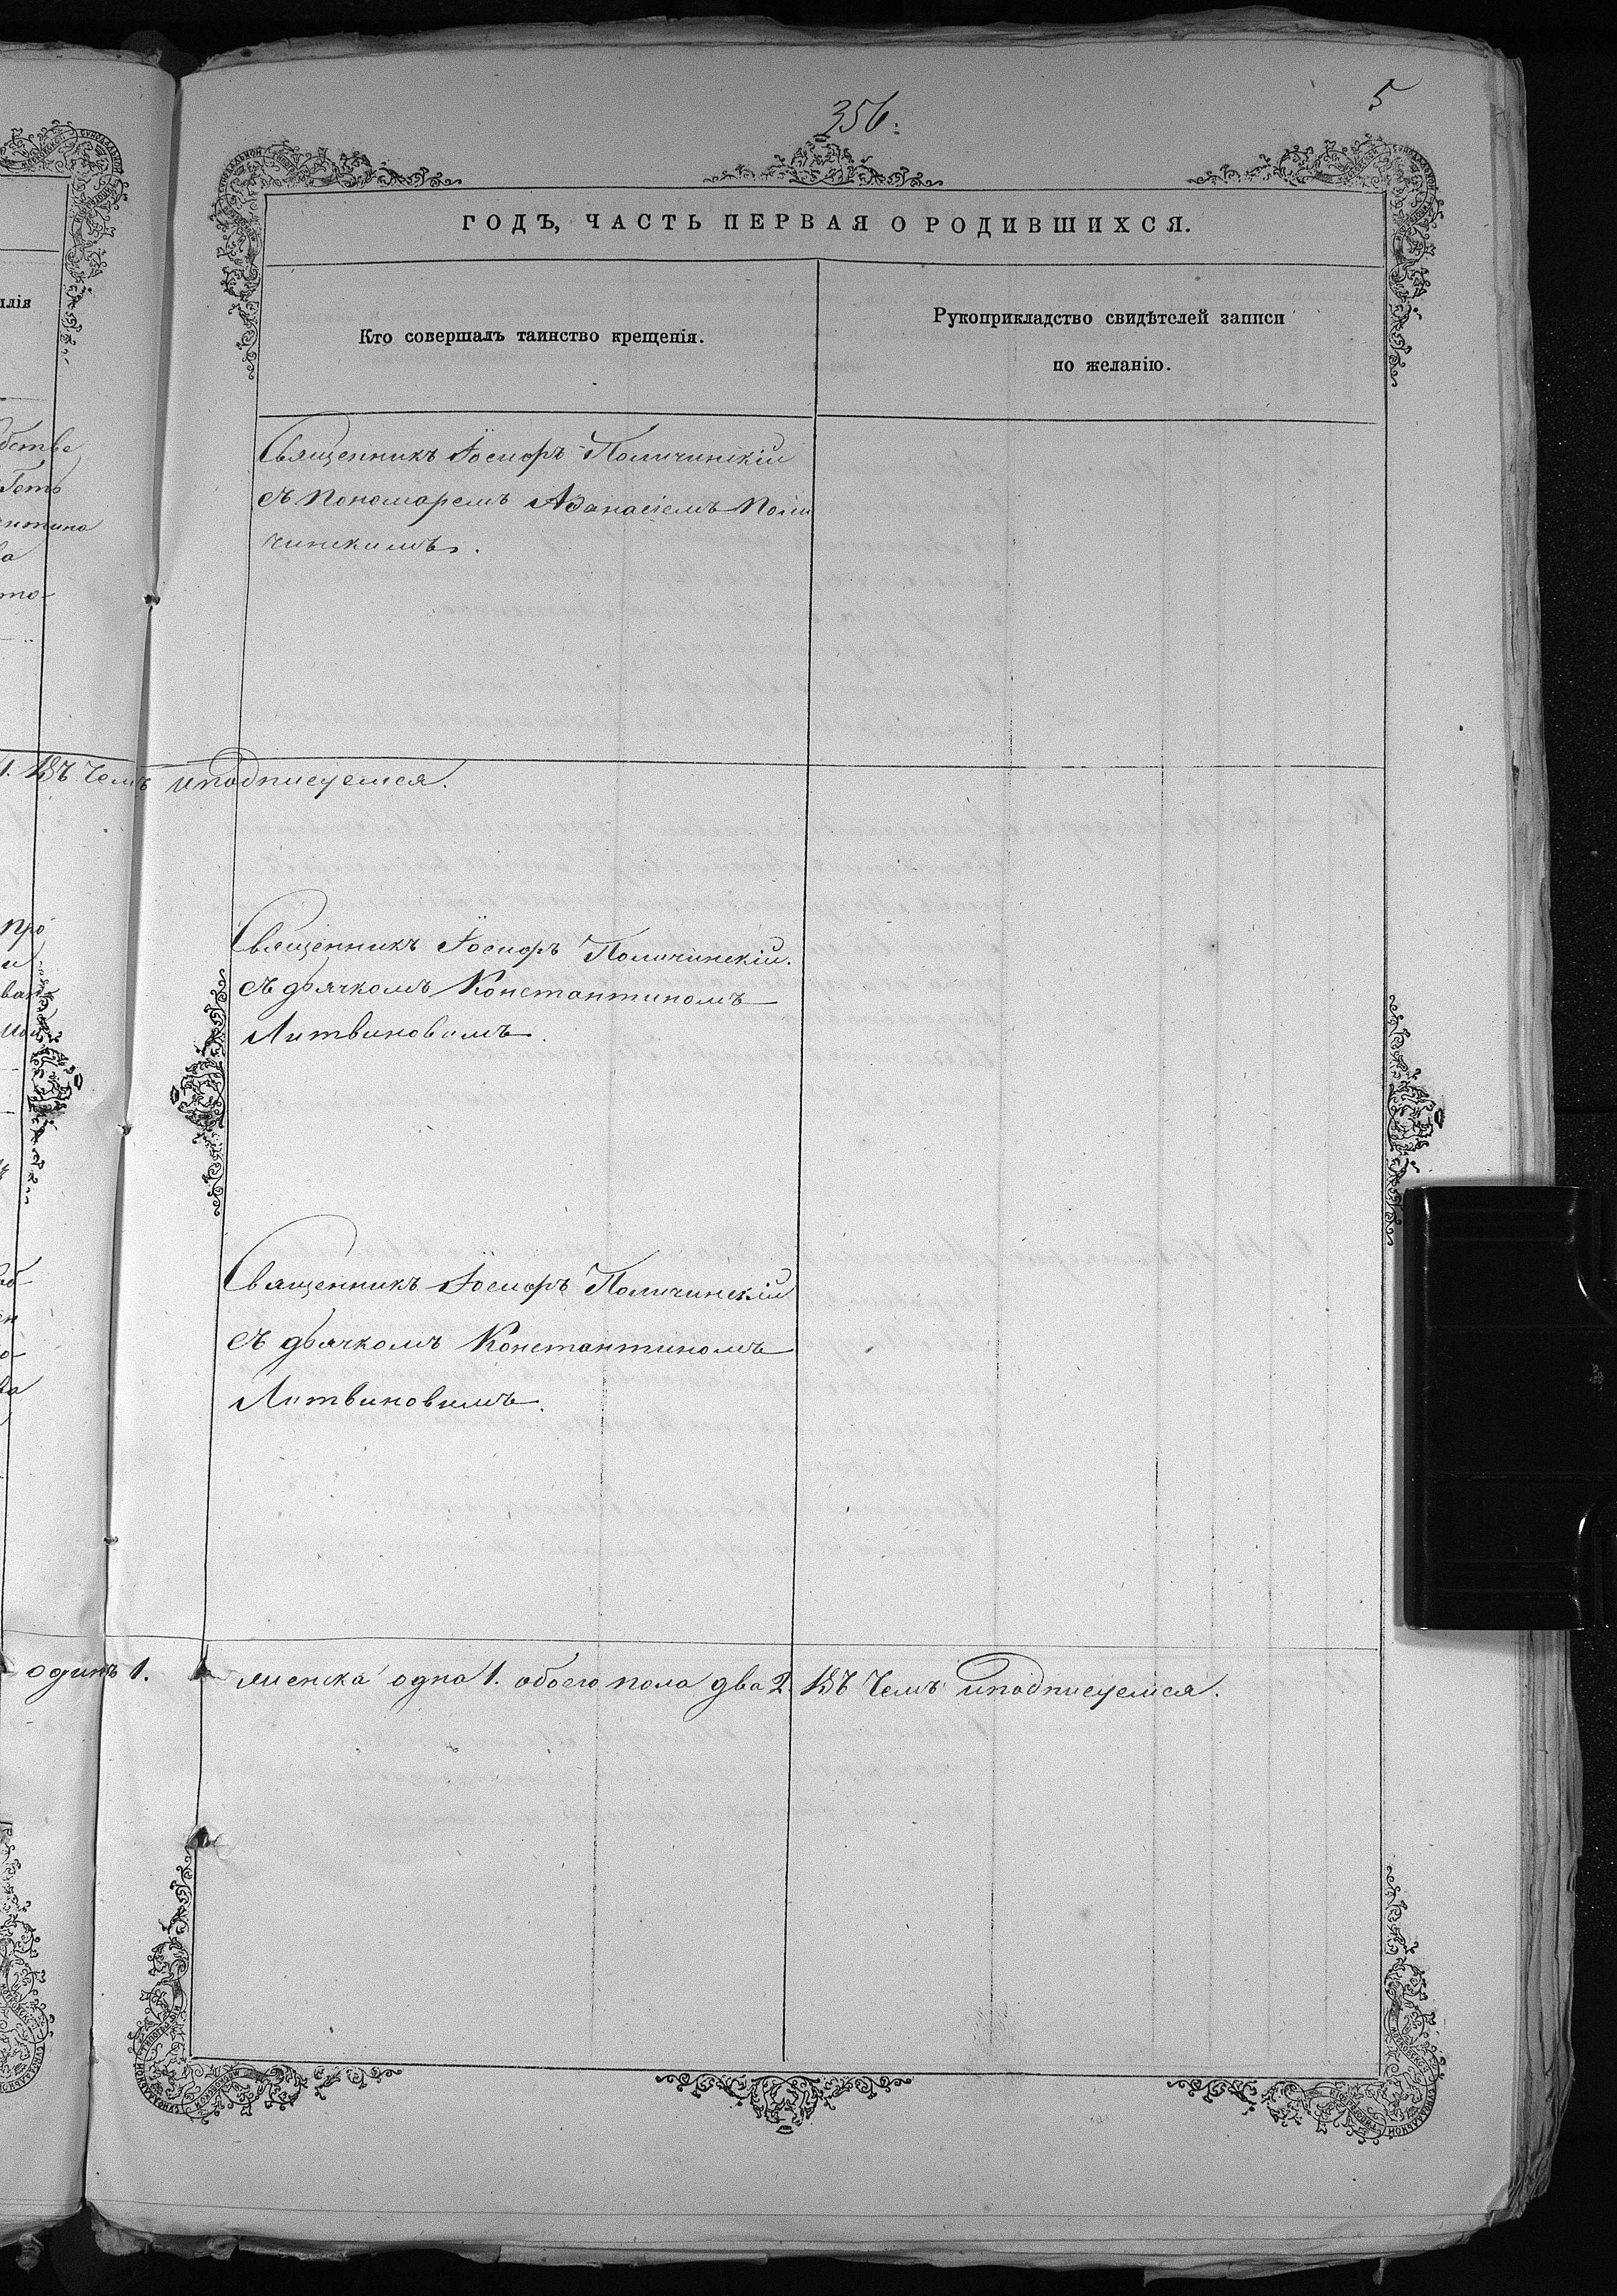 356.
5
ГОДЪ, ЧАСТЬ ПЕРВАЯ О РОДИВШИХСЯ.
Кто совершалъ таинство крещенія.
Рукоприкладство свидѣтелей записи
по желанію.
Священникъ Іосифъ Поличинскій
съ Пономаремъ Аѳанасіемъ Поли
чинскимъ.
1. Въ чемъ иподписуемся.
Священникъ Іосифъ Поличинскій.
съ дьячкомъ Константиномъ
Литвиновымъ.
Священникъ Іосифъ Поличинскій
съ дьячкомъ Константиномъ
Литвиновымъ.
одинъ 1. женска одна 1. обоего пола два 2. Въ чемъ иподписуемся.